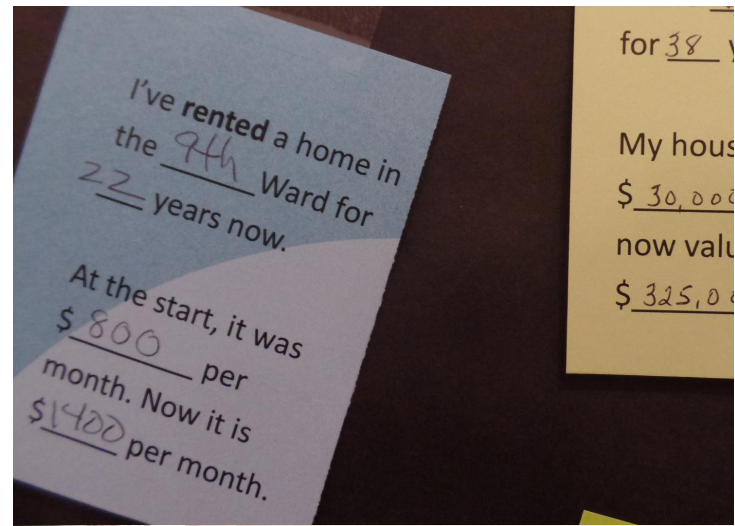 I've rented a home in
the 9th Ward for
22 years now.
At the start, it was
$800 per
month. Now it is
$1400 per month.
for 38
My
$
now
$